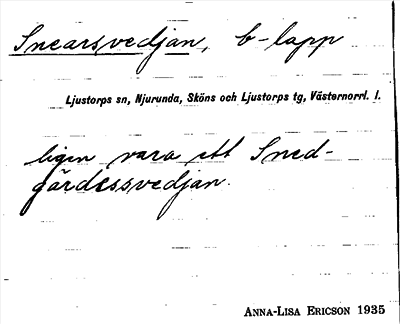 Snearsvedjan, b-lapp
Ljustorps sn, Njurunda, Sköns och Ljustorps tg, Västernorrl. l.
ligen vara ett Sned-
gärdessvedjan.
ANNA-LISA ERICSON 1935